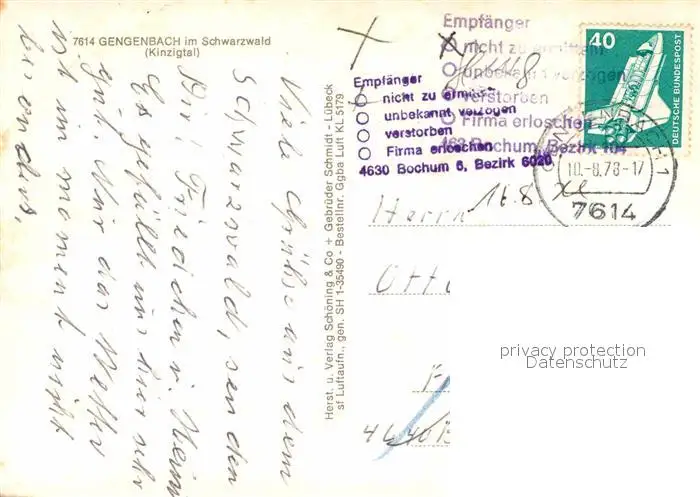 7614 GENGENBACH im Schwarzwald
(Kinzigtal)
Viele Grüße aus dem
Schwarzwald, senden
Dir, Friedchen u Heini
Es gefällt uns hier sehr
gut. Nur das Wetter
ist im moment nicht
besonders.
Herst. u. Verlag Schöning & Co + Gebrüder Schmidt - Lübeck
sf Luftaufn., gen. SH 1-35490 - Bestellnr. Ggba Luft KL 5179
Empfänger
nicht zu ermitteln
unbekannt verzogen
verstorben
Firma erloschen
4630 Bochum, Bezirk 104
Empfänger
nicht zu ermitteln
unbekannt verzogen
verstorben
Firma erloschen
4630 Bochum 6, Bezirk 6020
40
DEUTSCHE BUNDESPOST
GENGENBACH 1
10.-8.78-17
7614
16.8
Herrn
Ott
privacy protection
Datenschutz